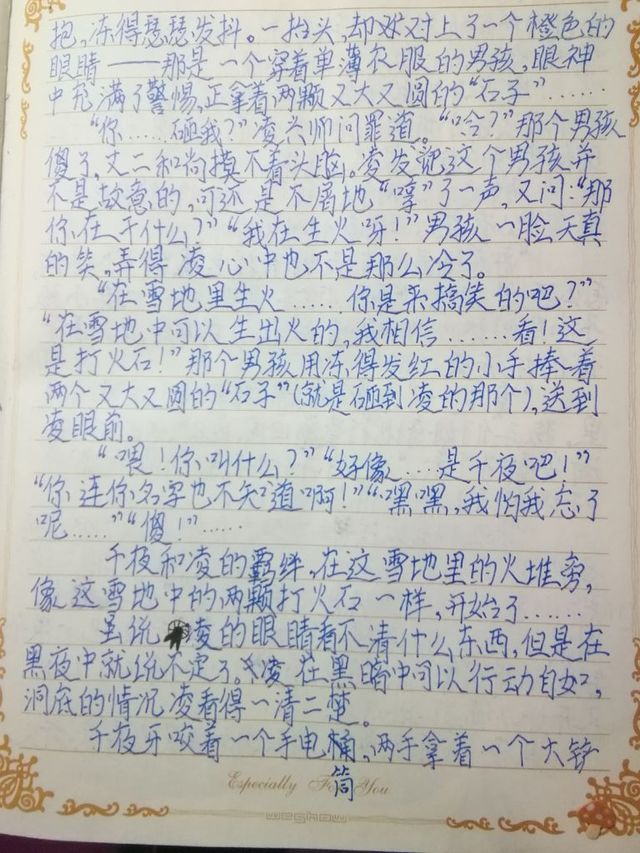 抱,冻得瑟瑟发抖。一抬头,却对上了一个橙色的
眼睛——那是一个穿着单薄衣服的男孩,眼神
中充满了警惕,正拿着两颗又大又圆的“石子”……
“你……砸我?”凌兴师问罪道。“哈?”那个男孩
傻了,丈二和尚摸不着头脑。凌发觉这个男孩并
不是故意的,可还是不屑地“哼”了一声,又问:“那
你在干什么?”“我在生火呀!”男孩一脸天真
的笑,弄得凌心中也不是那么冷了。
“在雪地里生火……你是来搞笑的吧?”
“在雪地中可以生出火的,我相信……看!这
是打火石!”那个男孩用冻得发红的小手捧着
两个又大又圆的“石子”(就是砸到凌的那个),送到
凌眼前。
“喂!你叫什么?”“好像……是千夜吧!”
“你连你名字也不知道啊!”“嘿嘿,我怕我忘了
呢……”“傻!”……
千夜和凌的羁绊,在这雪地里的火堆旁,
像这雪地中的两颗打火石一样,开始了……
虽说凌的眼睛看不清什么东西,但是在
黑夜中就说不定了。凌在黑暗中可以行动自如,
洞底的情况凌看得一清二楚。
千夜牙咬着一个手电桶,两手拿着一个大铲
筒
Especially For You